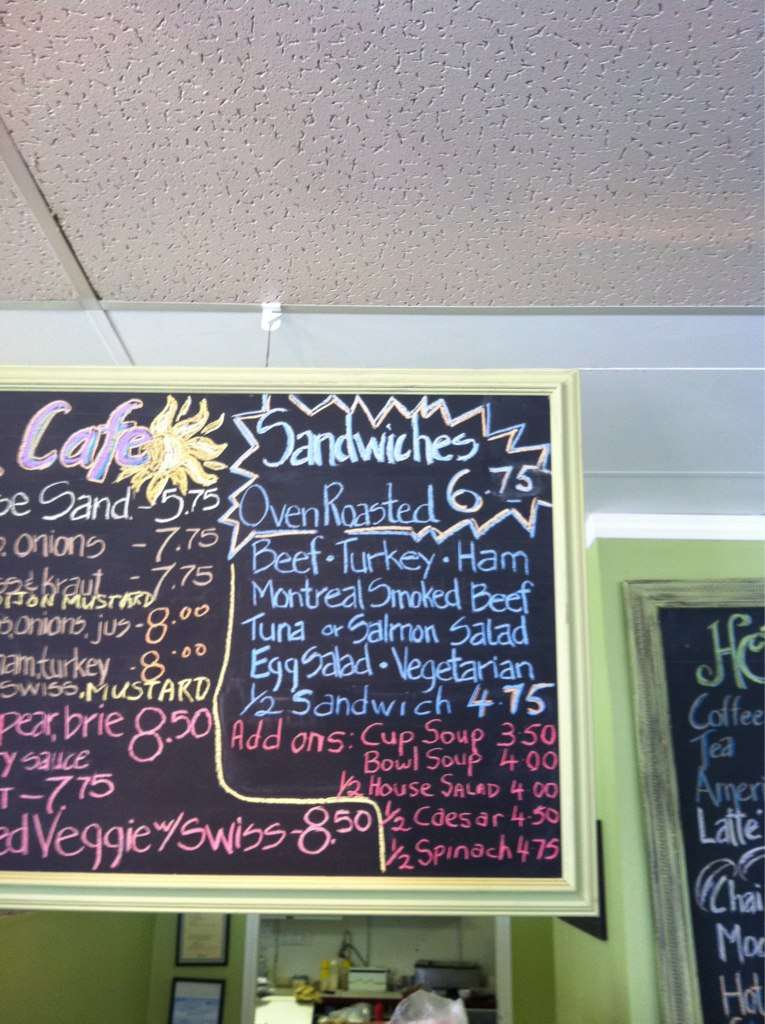 Cafe
Sand. - 5.75
onions - 7.75
& kraut - 7.75
MUSTARD
onions, jus - 8.00
turkey - 8.00
SWISS, MUSTARD
pear, brie 8.50
sauce
- 7.75
Veggie w/ Swiss - 8.50
Sandwiches
Oven Roasted 6.75
Beef • Turkey • Ham
Montreal Smoked Beef
Tuna or Salmon Salad
Egg Salad • Vegetarian
1/2 Sandwich 4.75
Add ons: Cup Soup 3.50
Bowl Soup 4.00
1/2 House Salad 4.00
1/2 Caesar 4.50
1/2 Spinach 4.75
Coffee
Tea
Ameri
Latte
Chai
Hot